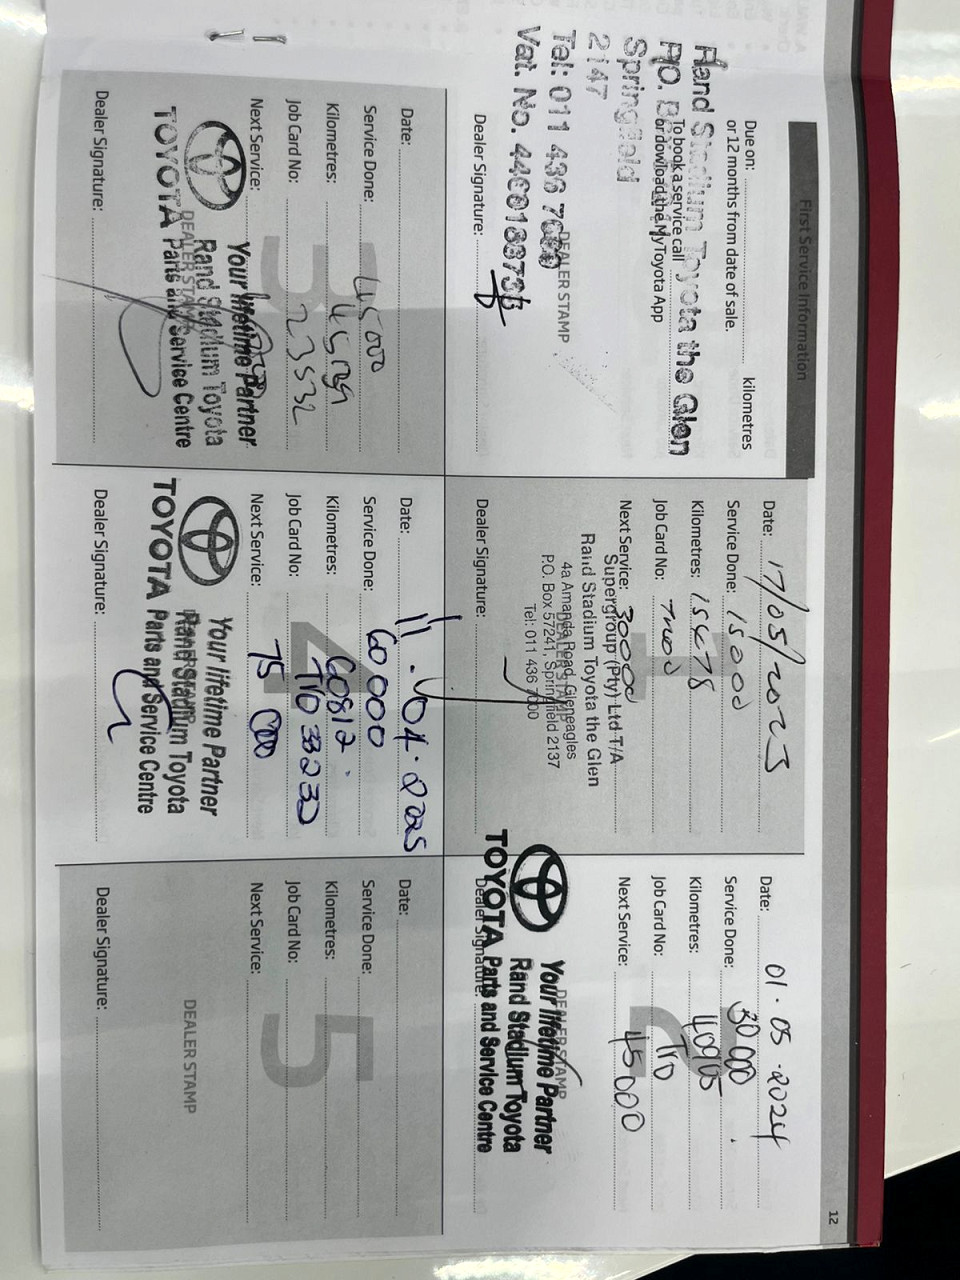 First Service Information
Due on: kilometres
or 12 months from date of sale.
To book a service call
or dowload the MyToyota App
Rand Stadium Toyota the Glen
P.O.
Springfield
2147
Tel: 011 436
Vat. No.
DEALER STAMP
Dealer Signature:
1
Date: 17/05/2023
Service Done: 15000
Kilometres: 15478
Job Card No:
Next Service: 30000
Supergroup (Pty) Ltd T/A
Rand Stadium Toyota the Glen
4a Amanda Road, Gleneagles
P.O. Box 57241, Springfield 2137
Tel: 011 436 7000
DEALER STAMP
Dealer Signature:
2
Date: 01.05.2024
Service Done: 30 000
Kilometres:
Job Card No:
Next Service: 45 000
DEALER STAMP
Your lifetime Partner
Rand Stadium Toyota
TOYOTA Parts and Service Centre
Dealer Signature:
3
Date:
Service Done: 45 000
Kilometres:
Job Card No: 23532
Next Service:
Your lifetime Partner
DEALER STAMP
Rand Stadium Toyota
TOYOTA Parts and Service Centre
Dealer Signature:
4
Date: 11.04.2025
Service Done: 60 000
Kilometres: 60812
Job Card No:
Next Service: 75 000
Your lifetime Partner
Rand Stadium Toyota
TOYOTA Parts and Service Centre
Dealer Signature:
5
Date:
Service Done:
Kilometres:
Job Card No:
Next Service:
DEALER STAMP
Dealer Signature:
12